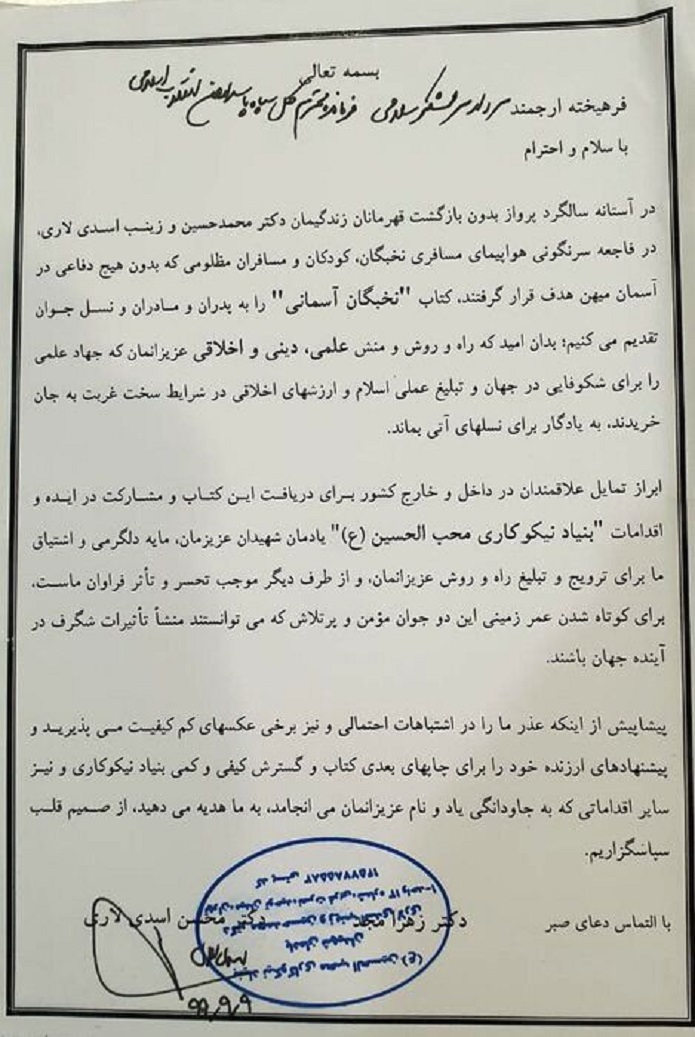 بسمه تعالی
فرهیخته ارجمند سردار سرلشکر سلامی فرمانده محترم کل سپاه پاسداران انقلاب اسلامی
با سلام و احترام
در آستانه سالگرد پرواز بدون بازگشت قهرمانان زندگیمان دکتر محمدحسین و زینب اسدی لاری،
در فاجعه سرنگونی هواپیمای مسافری نخبگان، کودکان و مسافران مظلومی که بدون هیچ دفاعی در
آسمان میهن هدف قرار گرفتند، کتاب "نخبگان آسمانی" را به پدران و مادران و نسل جوان
تقدیم می کنیم؛ بدان امید که راه و روش و منش علمی، دینی و اخلاقی عزیزانمان که جهاد علمی
را برای شکوفایی در جهان و تبلیغ عملی اسلام و ارزشهای اخلاقی در شرایط سخت غربت به جان
خریدند، به یادگار برای نسلهای آتی بماند.
ابراز تمایل علاقمندان در داخل و خارج کشور برای دریافت این کتاب و مشارکت در ایده و
اقدامات "بنیاد نیکوکاری محب الحسین (ع)" یادمان شهیدان عزیزمان، مایه دلگرمی و اشتیاق
ما برای ترویج و تبلیغ راه و روش عزیزانمان، و از طرف دیگر موجب تحسر و تأثر فراوان ماست،
برای کوتاه شدن عمر زمینی این دو جوان مؤمن و پرتلاش که می توانستند منشأ تأثیرات شگرف در
آینده جهان باشند.
پیشاپیش از اینکه عذر ما را در اشتباهات احتمالی و نیز برخی عکسهای کم کیفیت می پذیرید و
پیشنهادهای ارزنده خود را برای چاپهای بعدی کتاب و گسترش کیفی و کمی بنیاد نیکوکاری و نیز
سایر اقداماتی که به جاودانگی یاد و نام عزیزانمان می انجامد، به ما هدیه می دهید، از صمیم قلب
سپاسگزاریم.
با التماس دعای صبر دکتر زهرا مجد دکتر محسن اسدی لاری
بنیاد نیکوکاری محب الحسین (ع)
یادمان شهیدان
۹۹/۹/۹